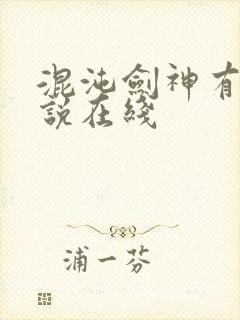 混沌劍神有
說在綫
浦一芬